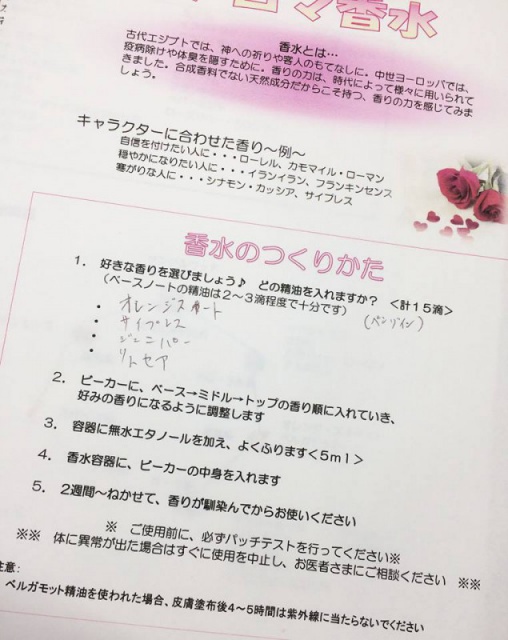 香水
香水とは…
古代エジプトでは、神への祈りや客人のもてなしに。中世ヨーロッパでは、
疫病除けや体臭を隠すために。香りの力は、時代によって様々に用いられて
きました。合成香料でない天然成分だからこそ持つ、香りの力を感じてみま
しょう。
キャラクターに合わせた香り～例～
自信を付けたい人に・・・ローレル、カモマイル・ローマン
穏やかになりたい人に・・・イランイラン、フランキンセンス
塞がりな人に・・・シナモン・カッシア、サイプレス
香水のつくりかた
1. 好きな香りを選びましょう♪ どの精油を入れますか？ <計15滴>
（ベースノートの精油は2～3滴程度で十分です）
・ オレンジスイート
(ベンゾイン)
・ サイプレス
・ ジュニパー
・ リトセア
2. ビーカーに、ベース→ミドル→トップの香り順に入れていき、
好みの香りになるように調整します
3. 容器に無水エタノールを加え、よくふります<5ml>
4. 香水容器に、ビーカーの中身を入れます
5. 2週間～ねかせて、香りが馴染んでからお使いください
※ ご使用前に、必ずパッチテストを行ってください※
※※ 体に異常が出た場合はすぐに使用を中止し、お医者さまにご相談ください ※※
注意:
ベルガモット精油を使われた場合、皮膚塗布後4～5時間は紫外線に当たらないでください